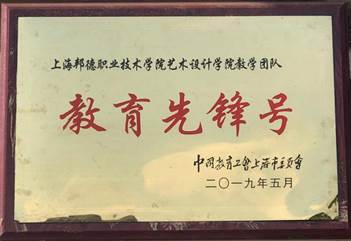 上海邦德职业技术学院艺术设计学院教学团队
教育先锋号
中国教育工会上海市委员会
二〇一九年五月